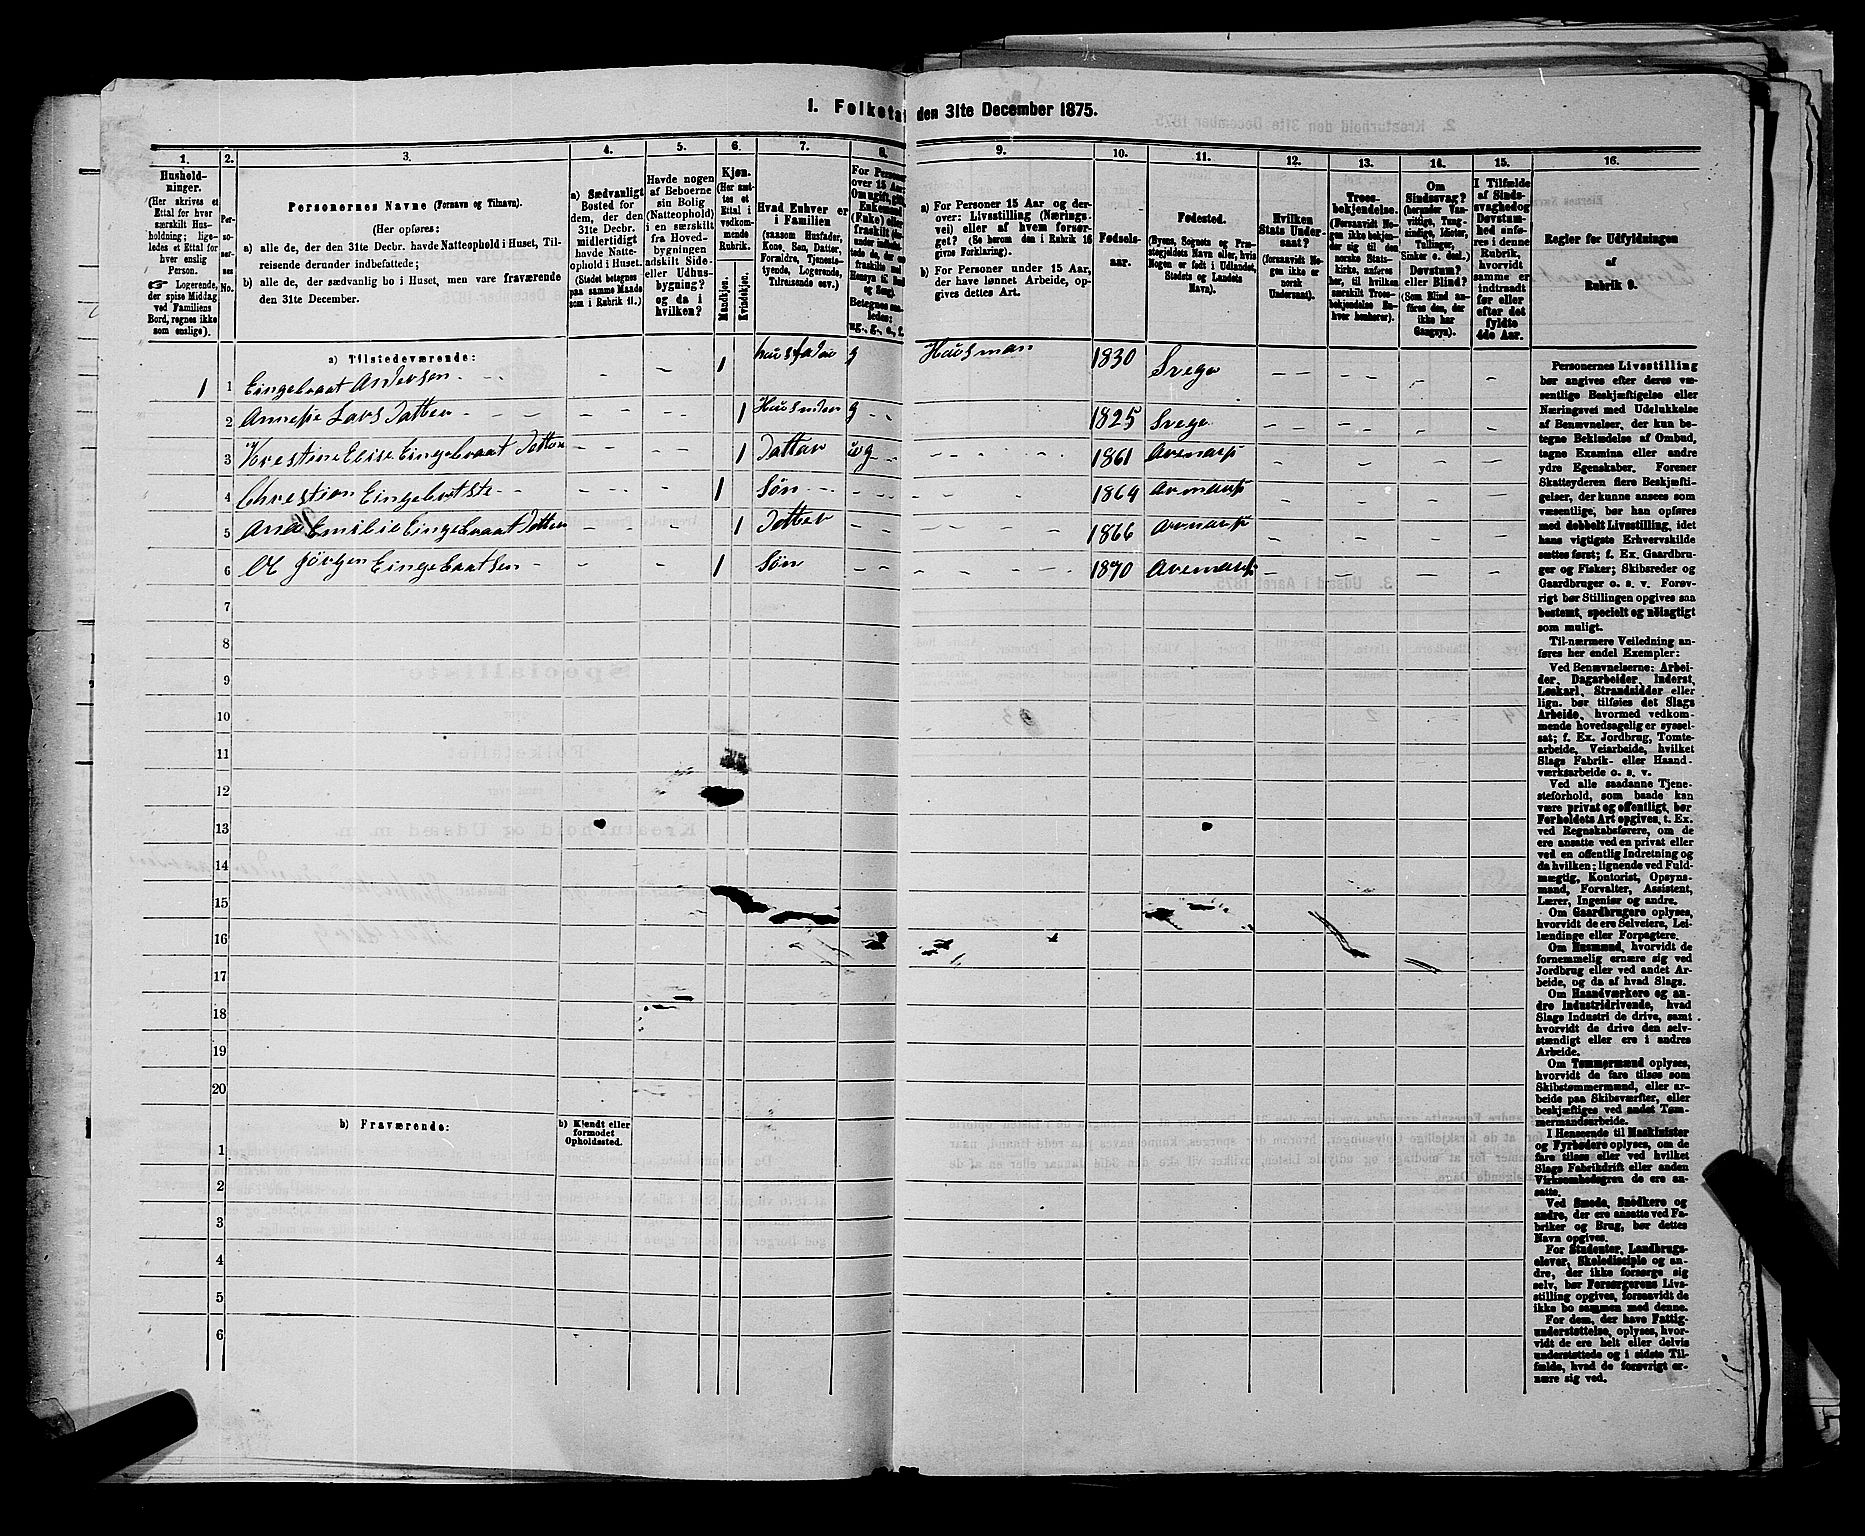 1. Folketæ den 31te December 1875.
1. 2. 3. 4. 5. 6. 7. 8. 9. 10. 11. 12. 13. 14. 15. 16.
Hushold-
ninger.
(Her skrives et
Ettal for hver
særskilt Hus-
holdning; lige-
ledes et Ettal for
hver enslig
Person.
Logerende,
der spise Middag
ved Familiens
Bord, regnes ikke
som enslige).
Per-
so-
ner-
nes
No.
Personernes Navne (Fornavn og Tilnavn).
(Her opføres:
a) alle de, der den 31te Decbr. havde Natteophold i Huset, Til-
reisende derunder indbefattede;
b) alle de, der sædvanlig bo i Huset, men vare fraværende
den 31te December.
a) Sædvanligt
Bosted for
dem, der den
31te Decbr.
midlertidigt
havde Natte-
ophold i Huset.
(Stedet betegnes
paa samme Maade
som i Rubrik 11.)
Havde nogen
af Beboerne
sin Bolig
(Natteophold)
i en særskilt
fra Hoved-
bygningen
adskilt Side-
eller Udhus-
bygning?
og da i
hvilken?
Kjøn.
(Her sæt-
tes et
Ettal i
vedkom-
mende
Rubrik.
Mandkjøn.
Kvindekjøn.
Hvad Enhver er
i Familien
(saasom Husfader,
Kone, Søn, Datter,
Forældre, Tjeneste-
tyende, Logerende,
Tilreisende osv.)
For Personer
over 15 Aar:
a) For Personer 15 Aar og der-
over: Livsstilling (Nærings-
vei) eller af hvem forsør-
get? (Se herom den i Rubrik 16
givne Forklaring).
b) For Personer under 15 Aar,
der have lønnet Arbeide, op-
gives dettes Art.
Fødsels-
aar.
Fødested.
(Byens, Sognets og Præ-
stegjeldets Navn eller, hvis
Nogen er født i Udlandet,
Stedets og Landets
Navn).
Hvilken
Stats Under-
saat?
(foraavidt No-
gen ikke er
norsk
Undersaat).
Troes-
bekjendelse.
(Forsaavidt No-
gen ikke bekjen-
der sig til den
norske Stats-
kirke, anføres
her, til hvilken
særskilt Troes-
bekjendelse En-
hver henhører).
Om
Sindssvag?
(herunder Van-
vittige, Tung-
sindige, Idioter,
Tullinger,
Sinker o. desl.)
Døvstum?
eller Blind?
(Som Blind an-
føres den, der
ikke har
Gangsyn).
I Tilfælde
af Sinds-
svaghed og
Døvstum-
hed anfø-
res i denne
Rubrik,
hvorvidt
samme er
indtraadt
før eller
efter det
fyldte
4de Aar.
Regler for Udfyldningen
af
Rubrik 9.
a) Tilstedeværende:
1 1 Eingebraat Andersen - - - 1 husfader g Husman 1830 Svege - - - -
2 Annesie Lars Datter - - - 1 Husmder g - - 1825 Svege - - - -
3 Krestine Elise Eingebraat Datter - - 1 Datter ug - - - 1861 Aremark - - - -
4 Chrestian Eingebrtste - - - 1 Søn - - - 1864 Aremark - - - -
5 Ana Emilie Eingebraat Datter - - 1 Datter - - - 1866 Aremark - - - -
6 Ol Jörgen Eingebraatsen - - - 1 Søn - - - 1870 Aremark - - - -
7
8
9
10
11
12
13
14
15
16
17
18
19
20
b) Fraværende:
b) Kjendt eller
formodet
Opholdssted.
1
2
3
4
5
6
Personernes Livsstilling
bør angives efter deres væ-
sentlige Beskjæftigelse eller
Næringsvei med Udelukkelse
af Benævnelser, der kun be-
tegne Beklædelse af Ombud,
tagne Examina eller andre
ydre Egenskaber. Forener
Skatteyderen flere Beskjæfti-
gelser, der kunne ansees som
væsentlige, bør han opføres
med dobbelt Livsstilling, idet
hans vigtigste Erhvervskilde
sættes først; f. Ex. Gaardbru-
ger og Fisker; Skibsreder og
Gaardbruger o. s. v. Forøv-
rigt bør Stillingen opgives saa
bestemt, specielt og nöiagtigt
som muligt.
Til nærmere Veiledning an-
føres her endel Exempler:
Ved Benævnelserne: Arbei-
der, Dagarbeider, Inderst,
Løskarl, Strandsidder eller
lign. bør tilføies det Slags
Arbeide, hvormed vedkom-
mende hovedsagelig er syssel-
sat; f. Ex. Jordbrug, Tomte-
arbeide, Veiarbeide, hvilket
Slags Fabrik- eller Haand-
værksarbeide o. s. v.
Ved alle saadanne Tjene-
steforhold, som baade kan
være privat og offentligt, bør
Forholdets Art opgives, t. Ex.
ved Regnskabsførere, om de
ere ansatte ved en privat eller
ved en offentlig Indretning og
da hvilken; lignende ved Fuld-
mægtig, Kontorist, Opsyns-
mand, Forvalter, Assistent,
Lærer, Ingeniør og andre.
Om Gaardbrugere oplyses,
hvorvidt de ere Selveiere, Lei-
lændinge eller Forpagtere.
Om Husmænd, hvorvidt de
fornemmelig ernære sig ved
Jordbrug eller ved andet Ar-
beide, og da af hvad Slags.
Om Haandværkere og an-
dre Industridrivende, hvad
Slags Industri de drive, samt
hvorvidt de drive den selv-
stændigt eller ere i andres
Arbeide.
Om Tømmermænd oplyses,
hvorvidt de fare tilsøs som
Skibstømmermænd, eller ar-
beide paa Skibsværfter, eller
beskjæftiges ved andet Tøm-
mermandsarbeide.
I Henseende til Maskinister
og Fyrbødere oplyses, om de
fare tilsøs eller ved hvilket
Slags Fabrikdrift eller anden
Virksomhedsgren de ere an-
satte.
Ved Smede, Snedkere og
andre, der ere ansatte ved Fa-
briker og Brug, bør dettes
Navn opgives.
For Studenter, Landbrugs-
elever, Skoledisciple og an-
dre, der ikke forsørge sig
selv, bør Forsørgerens Livs-
stilling opgives, forsaavidt de
ikke bo sammen med denne.
For dem, der have Fattig-
understøttelse, oplyses, hvor-
vidt de ere helt eller delvis
understøttede og i sidste Til-
fælde, hvad de forøvrigt er-
nære sig ved.